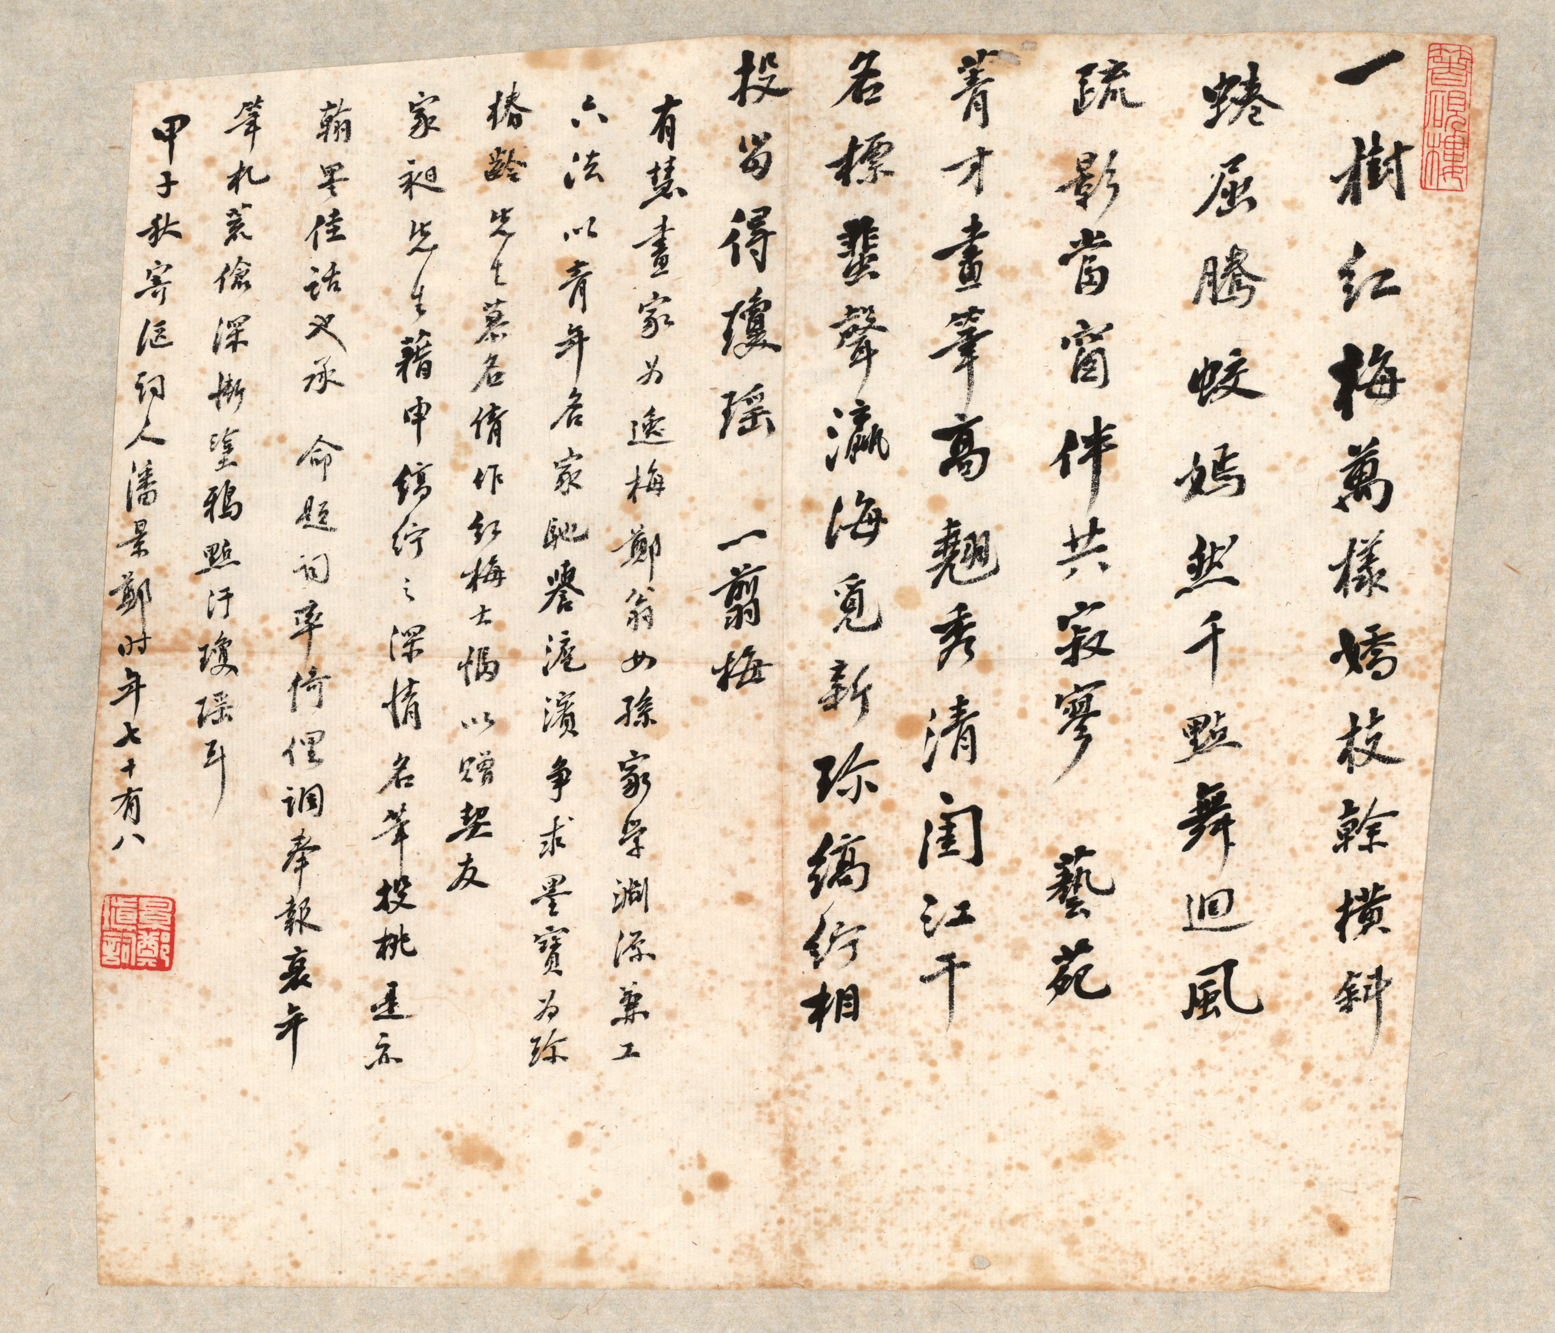 著硯樓
一樹紅梅萬樣嬌枝幹橫斜
蜷屈騰蛟嫣然千點舞迴風
疏影當窗伴共寂寥　藝苑
菁才畫筆高翹秀清閨江干
名標蜚聲瀛海覓新珎縞紵相
投留得瓊瑤　一翦梅
有慧畫家为逸梅鄭翁女孫家學淵源兼工
六法以青年名家馳譽滬濱争求墨寶为珎
椿齡先生慕名倩作紅梅大幅以贈契友
家昶先生藉申縞紵之深情名筆投桃是亦
翰墨佳話也承　命題詞率倚俚調奉報衰年
筆札荒傖深慚塗鴉點汙瓊瑤耳
甲子秋寄漚詞人潘景鄭时年七十有八
景鄭填詞